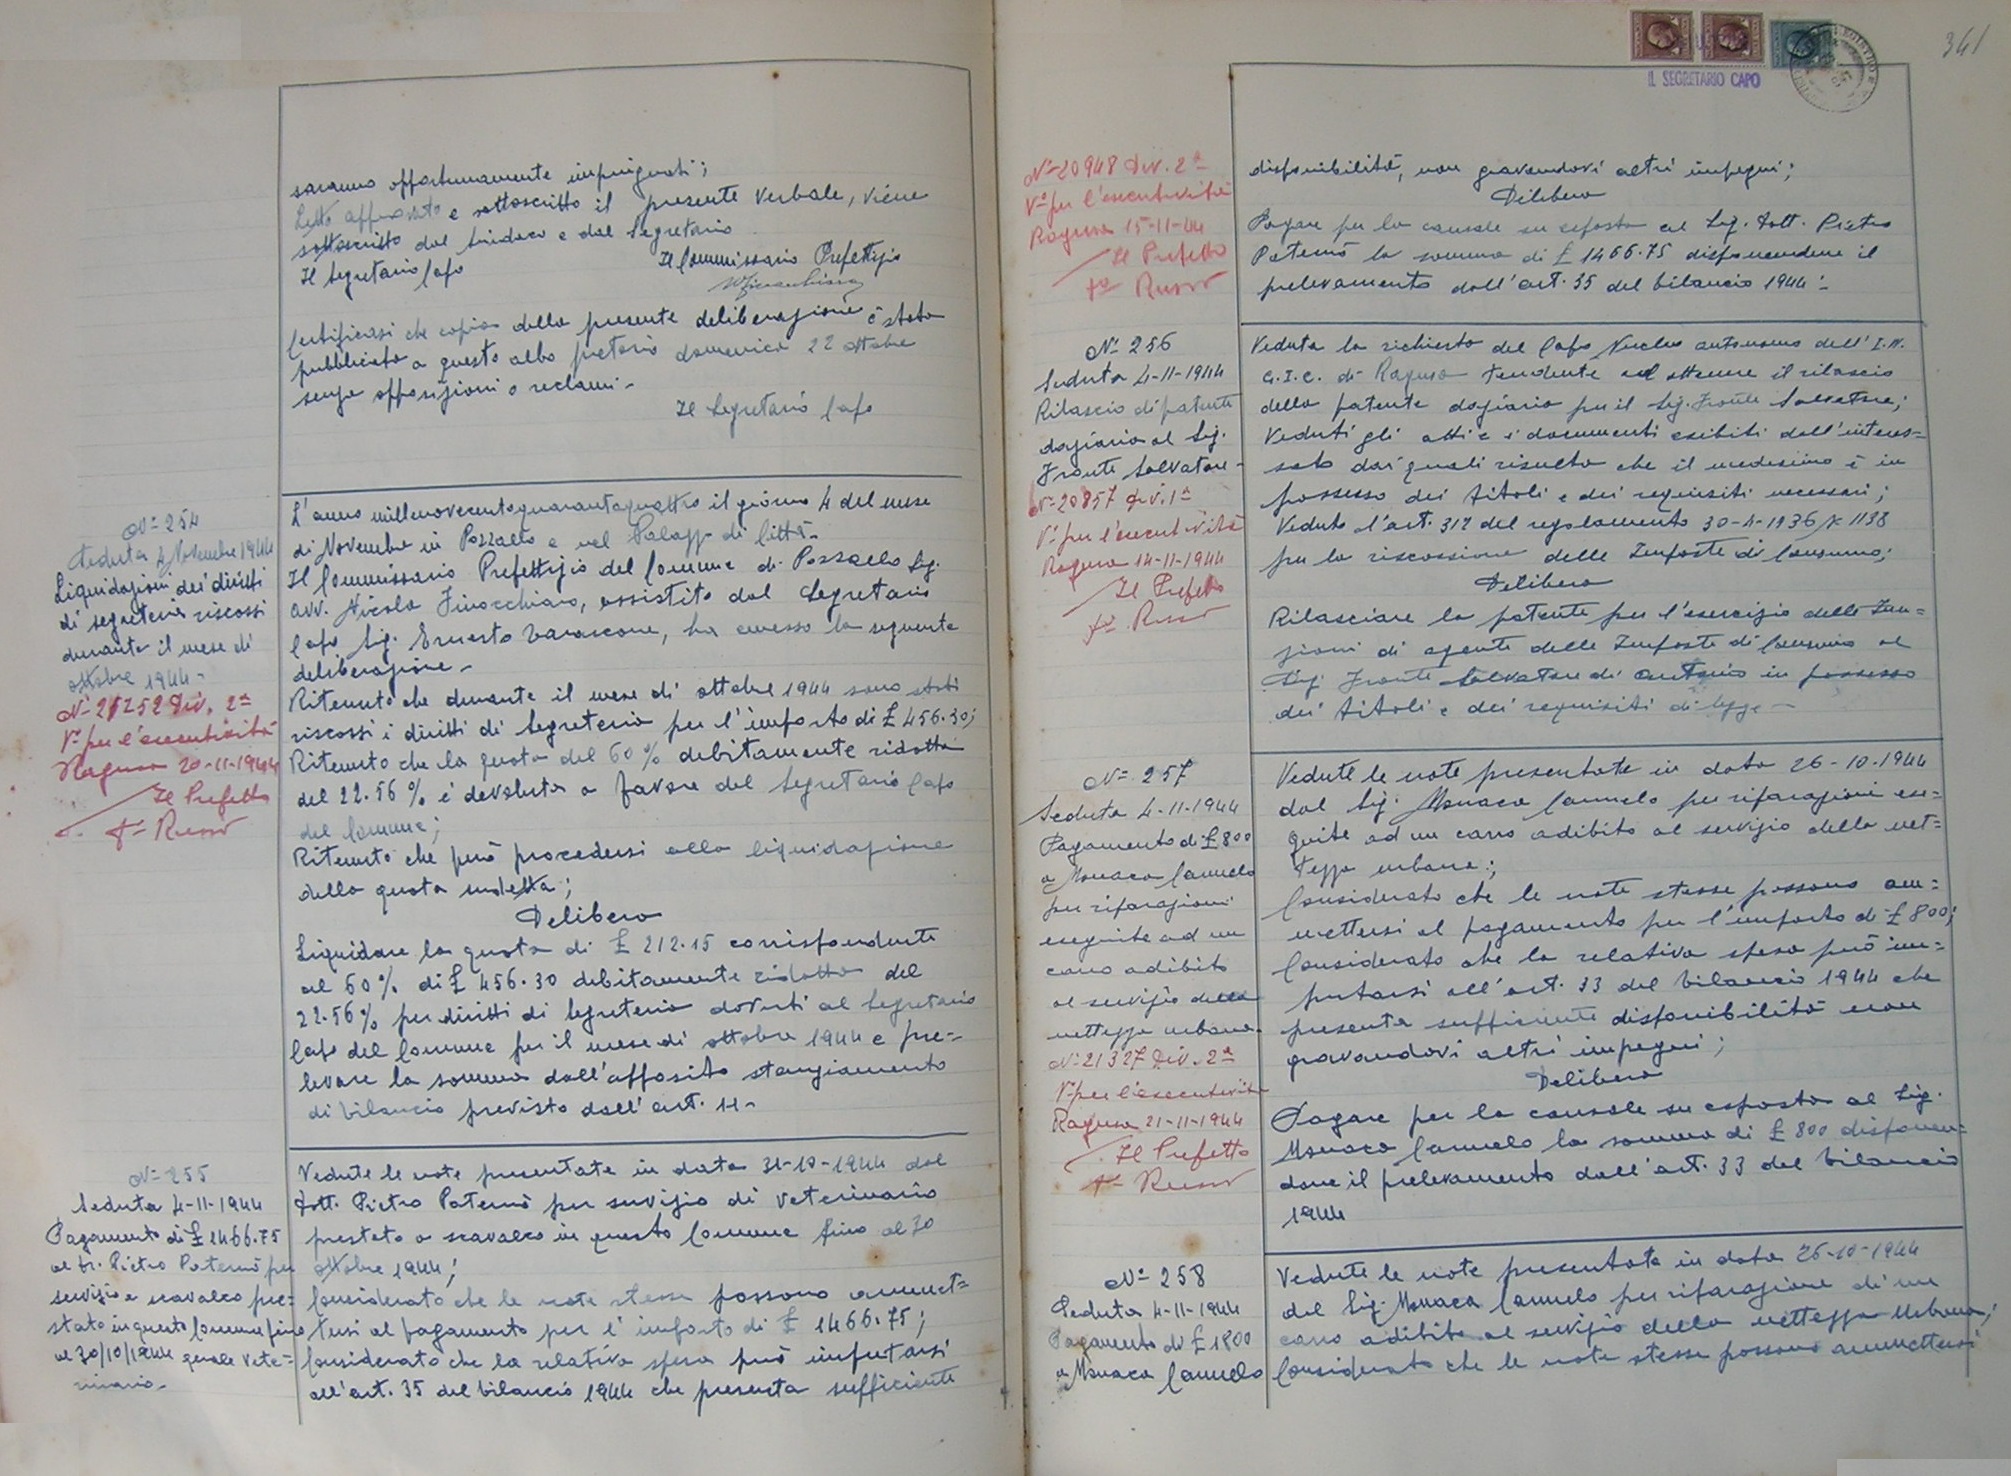 saranno opportunamente impinguati;
Letto approvato e sottoscritto il presente verbale, viene
sottoscritto dal Sindaco e dal Segretario
Il Segretario Capo
Il Commissario Prefettizio
Certificasi che copia della presente deliberazione è stata
pubblicata a questo albo pretorio domenica 22 ottobre
senza opposizioni o reclami.-
Il Segretario Capo
N= 254
Seduta 4 Novembre 1944
Liquidazioni dei diritti
di segreteria riscossi
durante il mese di
ottobre 1944.-
N= 21252 Div. 2a
V° per l'esecutività
Ragusa 20-11-1944
Il Prefetto
f° Russo
L'anno millenovecentoquarantaquattro il giorno 4 del mese
di Novembre in Pozzallo e nel Palazzo di Città.-
Il Commissario Prefettizio del Comune di Pozzallo Sig.
avv. Nicola Finocchiaro, assistito dal Segretario
Capo Sig. Ernesto, ha emesso la seguente
deliberazione.-
Ritenuto che durante il mese di ottobre 1944 sono stati
riscossi i diritti di Segreteria per l'importo di £ 456.30;
Ritenuto che la quota del 60% debitamente ridotta
del 22.56% è devoluta a favore del Segretario Capo
del Comune;
Ritenuto che può procedersi alla liquidazione
della quota sudetta;
Delibera
Liquidare la quota di £ 212.15 corrispondente
al 60% di £ 456.30 debitamente ridotta del
22.56% per diritti di Segreteria dovuti al Segretario
Capo del Comune per il mese di ottobre 1944 e pre=
levare la somma dall'apposito stanziamento
di bilancio previsto dall'art. 11.-
N= 255
Seduta 4-11-1944
Pagamento di £ 1466.75
al Dr. Pietro Paternò per
servizio a scavalco pre=
stato in questo Comune fino
al 30/10/1944 quale vete=
rinario.-
Vedute le note presentate in data 31-10-1944 dal
Dott. Pietro Paternò per servizio di veterinario
prestato a scavalco in questo Comune fino al 30
ottobre 1944;
Considerato che le note stesse possono ammet=
tersi al pagamento per l'importo di £ 1466.75;
Considerato che la relativa spesa può imputarsi
all'art. 35 del bilancio 1944 che presenta sufficiente
341
IL SEGRETARIO CAPO
N= 20948 Div. 2a
V° per l'esecutività
Ragusa 15-11-44
Il Prefetto
f° Russo
disponibilità, non gravandovi altri impegni;
Delibera
Pagare per la causale su esposta al Sig. Dott. Pietro
Paternò la somma di £ 1466.75 disponendone il
prelevamento dall'art. 35 del bilancio 1944.-
N= 256
Seduta 4-11-1944
Rilascio di patente
daziaria al Sig.
Fronte Salvatore.-
N= 20857 Div. 1a
V° per l'esecutività
Ragusa 14-11-1944
Il Prefetto
f° Russo
Veduta la richiesta del Capo Nucleo autonomo dell'I.N.
G.I.C. di Ragusa tendente ad ottenere il rilascio
della patente daziaria per il Sig. Fronte Salvatore;
Veduti gli atti e i documenti esibiti dall'interes=
sato dai quali risulta che il medesimo è in
possesso dei titoli e dei requisiti necessari;
Veduto l'art. 312 del regolamento 30-4-1936 N 1138
per la riscossione delle Imposte di Consumo;
Delibera
Rilasciare la patente per l'esercizio delle fun=
zioni di agente delle Imposte di Consumo al
Sig. Fronte Salvatore di Antonio in possesso
dei titoli e dei requisiti di legge.-
N= 257
Seduta 4-11-1944
Pagamento di £ 800
a Monaca Carmelo
per riparazioni
eseguite ad un
carro adibito
al servizio della
nettezza urbana.
N= 21327 Div. 2a
V° per l'esecutività
Ragusa 21-11-1944
Il Prefetto
f° Russo
Vedute le note presentate in data 26-10-1944
dal Sig. Monaca Carmelo per riparazioni ese=
guite ad un carro adibito al servizio della net=
tezza urbana;
Considerato che le note stesse possono am=
mettersi al pagamento per l'importo di £ 800;
Considerato che la relativa spesa può im=
putarsi all'art. 33 del bilancio 1944 che
presenta sufficiente disponibilità non
gravandovi altri impegni;
Delibera
Pagare per la causale su esposta al Sig.
Monaca Carmelo la somma di £ 800 disponen=
done il prelevamento dall'art. 33 del bilancio
1944
N= 258
Seduta 4-11-1944
Pagamento di £ 1800
a Monaca Carmelo
Vedute le note presentate in data 26-10-1944
dal Sig. Monaca Carmelo per riparazione di un
carro adibito al servizio della nettezza urbana;
Considerato che le note stesse possono ammettersi